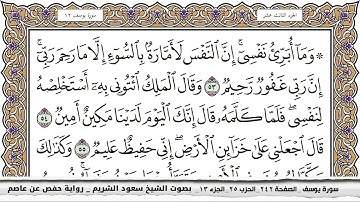 الجزء الثالث عشر
سورة يوسف ١٢
۞ وَمَا أُبَرِّئُ نَفْسِي ۚ إِنَّ النَّفْسَ لَأَمَّارَةٌ بِالسُّوءِ إِلَّا مَا رَحِمَ رَبِّي ۚ
إِنَّ رَبِّي غَفُورٌ رَحِيمٌ ٥٣ وَقَالَ الْمَلِكُ ائْتُونِي بِهِ أَسْتَخْلِصْهُ
لِنَفْسِي ۖ فَلَمَّا كَلَّمَهُ قَالَ إِنَّكَ الْيَوْمَ لَدَيْنَا مَكِينٌ أَمِينٌ ٥٤
قَالَ اجْعَلْنِي عَلَىٰ خَزَائِنِ الْأَرْضِ ۖ إِنِّي حَفِيظٌ عَلِيمٌ ٥٥ وَكَذَٰلِكَ
سورة يوسف _ الصفحة ٢٤٢ _ الحزب ٢٥ _ الجزء ١٣ _ بصوت الشيخ سعود الشريم _ رواية حفص عن عاصم